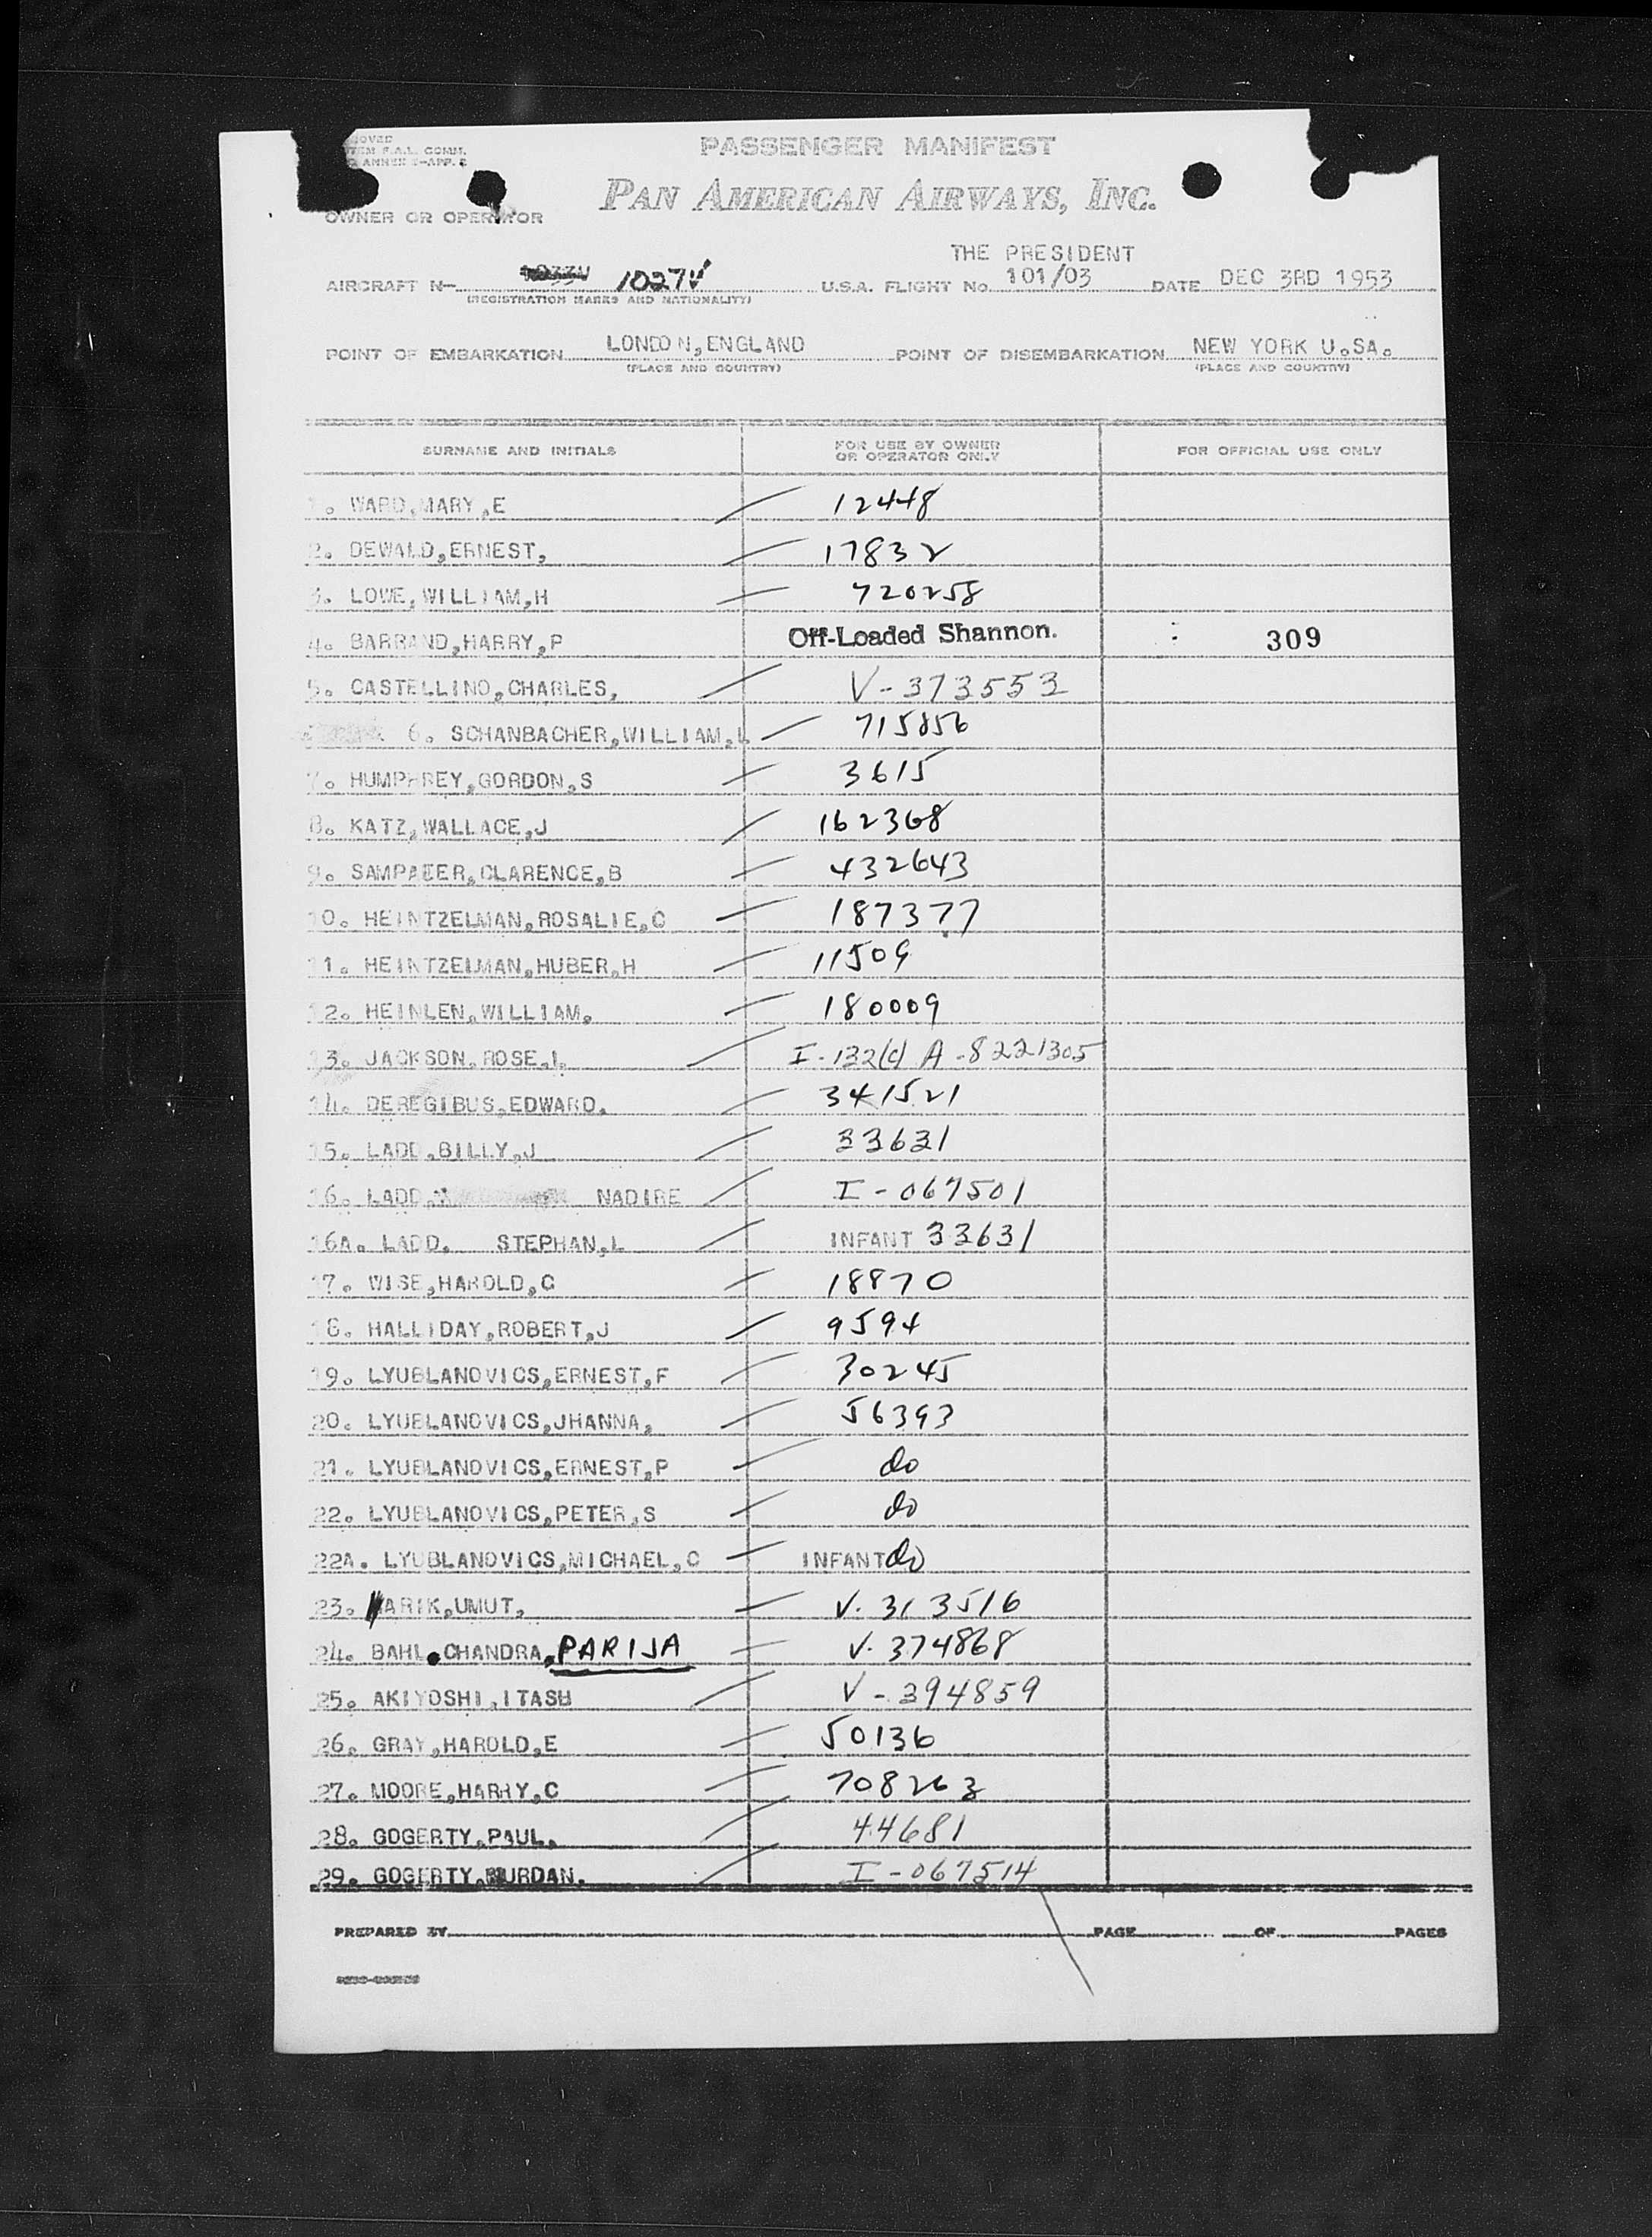 PASSENGER MANIFEST
PAN AMERICAN AIRWAYS, INC.
OWNER OR OPERATOR
THE PRESIDENT
AIRCRAFT N- 1027V U.S.A. FLIGHT No. 101/03 DATE DEC 3RD 1953
(REGISTRATION MARKS AND NATIONALITY)
POINT OF EMBARKATION LONDON,ENGLAND POINT OF DISEMBARKATION NEW YORK U.SA.
(PLACE AND COUNTRY) (PLACE AND COUNTRY)
SURNAME AND INITIALS FOR USE BY OWNER OR OPERATOR ONLY FOR OFFICIAL USE ONLY
1. WARD,MARY,E 12448
2. DEWALD,ERNEST, 17832
3. LOWE,WILLIAM,H 720258
4. BARRAND,HARRY,P Off-Loaded Shannon. 309
5. CASTELLINO,CHARLES, V-373553
6. SCHANBACHER,WILLIAM,L 715856
7. HUMPHREY,GORDON,S 3615
8. KATZ,WALLACE,J 162368
9. CLARENCE,B 432643
10. HEINTZELMAN,ROSALIE,C 187377
11. HEINTZELMAN,HUBER,H 11509
12. HEINLEN,WILLIAM. 180009
13. JACKSON,ROSE,L I-132(c) A-8221305
14. DEREGIBUS,EDWARD. 341521
15. LADD,BILLY,J 33631
16. LADD, NADIRE I-067501
16A. LADD. STEPHAN,L INFANT 33631
17. WISE,HAROLD,C 18870
18. HALLIDAY,ROBERT,J 9594
19. LYUBLANOVICS,ERNEST,F 30245
20. LYUBLANOVICS,JHANNA, 56393
21. LYUBLANOVICS,ERNEST,P do
22. LYUBLANOVICS,PETER,S do
22A. LYUBLANOVICS,MICHAEL,C INFANT do
23. ARIK,UMUT, V-313516
24. BAHL.CHANDRA,PARIJA V-374868
25. AKIYOSHI,ITASU V-394859
26. GRAY,HAROLD,E 50136
27. MOORE,HARRY,C 708263
28. GOGERTY,PAUL. 44681
29. GOGERTY,NURDAN. I-067514
PREPARED BY PAGE OF PAGES